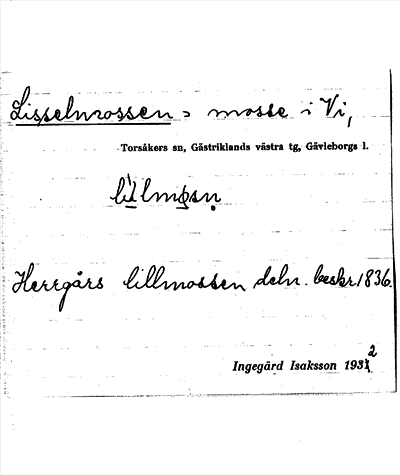 Lisselmossen, mosse i Vi,
Torsåkers sn, Gästriklands västra tg, Gävleborgs l.
Herrgårs lillmossen deln. beskr. 1836.
Ingegärd Isaksson 1932